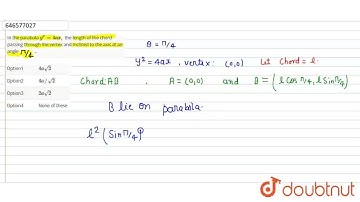 646577027
In the parabola y² = 4ax, the length of the chord
passing through the vertex and inclined to the axis at an
angle π/4
Option1 4a√2
Option2 4a / √2
Option3 2a√2
Option4 None of these
θ = π/4
y² = 4ax , vertex : (0,0) Let Chord = l.
Chord: AB , A = (0,0) and B = (l Cos π/4, l Sin π/4)
B lie on parabola.
l² (Sin π/4)
doubtnut